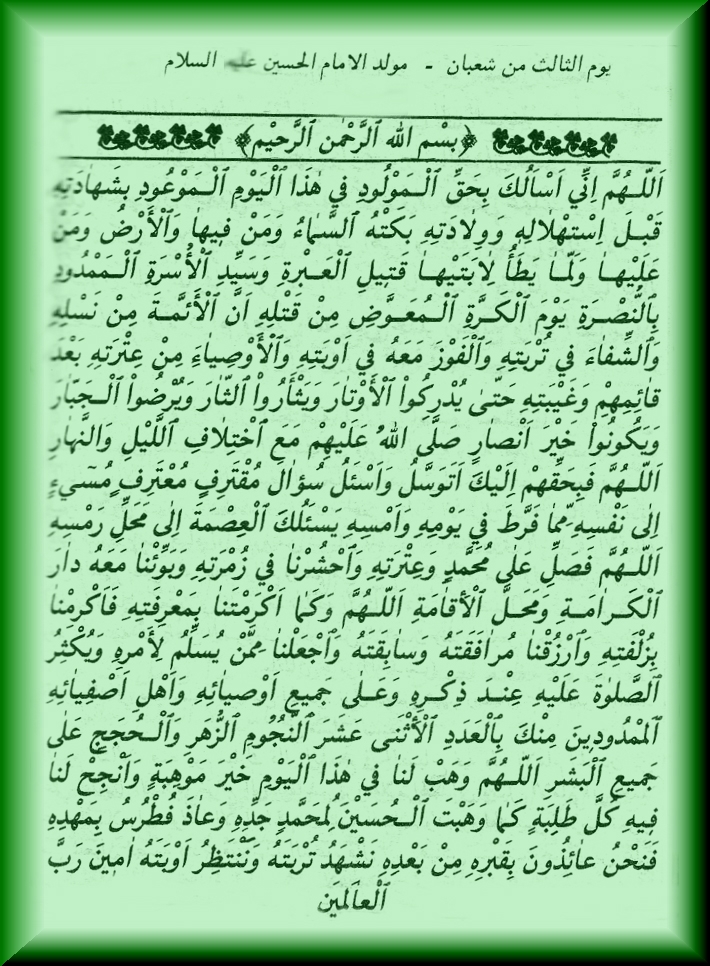 يوم الثالث من شعبان - مولد الامام الحسين عليه السلام
﴿بِسْمِ ٱللهِ ٱلرَّحْمٰنِ ٱلرَّحِيْمِ﴾
اَللّـٰهُمَّ اِنّي اَسْاَلُكَ بِحَقِّ ٱلْـمَوْلُودِ في هٰذَا ٱلْيَوْمِ ٱلْـمَوْعُودِ بِشَهادَتِهِ
قَبْـلَ اِسْتِهْلالِهِ وَوِلادَتِهِ بَكَتْهُ ٱلسَّمٰاءُ وَمَنْ فيها وَٱلْأَرْضُ وَمَنْ
عَلَيْهـا وَلَمّـا يَطَأْ لابَتَيْهـا قَتيلِ ٱلْعَـبْرَةِ وَسَيِّدِ ٱلْأُسْرَةِ ٱلْـمَمْدُودِ
بِٱلنُّصْـرَةِ يَوْمَ ٱلْكَـرَّةِ ٱلْـمُعَـوَّضِ مِنْ قَتْلِهِ اَنَّ ٱلْأَئِمَّـةَ مِنْ نَسْلِهِ
وَٱلشِّفاءَ في تُرْبَتِهِ وَٱلْفَوْزَ مَعَهُ في اَوْبَتِهِ وَٱلْأَوْصِياءَ مِنْ عِتْرَتِهِ بَعْدَ
قائِمِهِمْ وَغَيْبَتِهِ حَتّىٰ يُدْرِكُواْ ٱلْأَوْتارَ وَيَثْأَرُواْ ٱلثّارَ وَيُرْضُواْ ٱلْـجَبّارَ
وَيَكُونُواْ خَيْرَ اَنْصارٍ صَلَّى اللهُ عَلَيْهِمْ مَعَ ٱخْتِلافِ ٱللَّيْلِ وَالنَّهارِ
اَللّـٰهُمَّ فَبِحَقِّهِمْ اِلَيْكَ اَتَوَسَّلُ وَاَسْئَلُ سُؤالَ مُقْتَرِفٍ مُعْتَرِفٍ مُسيءٍ
اِلىٰ نَفْسِهِ مِمّا فَرَّطَ في يَوْمِهِ وَاَمْسِهِ يَسْئَلُكَ ٱلْعِصْمَةَ اِلىٰ مَحَلِّ رَمْسِهِ
اَللّـٰهُمَّ فَصَلِّ عَلىٰ مُحَمَّدٍ وَعِتْرَتِهِ وَٱحْشُرْنا في زُمْرَتِهِ وَبَوِّئْنا مَعَهُ دارَ
ٱلْكَـرامَـةِ وَمَحَـلَّ ٱلْأِقامَةِ اَللّـٰهُمَّ وَكَما اَكْرَمْتَنا بِمَعْرِفَتِهِ فَاَكْرِمْنا
بِزُلْفَتِهِ وَٱرْزُقْنا مُرافَقَتَهُ وَسابِقَتَهُ وَٱجْعَلْنا مِمَّنْ يُسَلِّمُ لِأَمْرِهِ وَيُكْثِرُ
ٱلصَّلوٰةَ عَلَيْهِ عِنْـدَ ذِكْـرِهِ وَعَـلىٰ جَميعِ اَوْصيائِهِ وَاَهْلِ اَصْفِيائِهِ
ٱلْمَمْدُودينَ مِنْكَ بِٱلْعَدَدِ ٱلْأَثْنَى عَشَرَ ٱلنُّجُومِ ٱلزُّهَرِ وَٱلْـحُجَجِ عَلىٰ
جَميعِ ٱلْبَشَرِ اَللّـٰهُمَّ وَهَبْ لَنا في هٰذَا ٱلْيَوْمِ خَيْرَ مَوْهِبَةٍ وَاَنْجِحْ لَنا
فيهِ كُلَّ طَلِبَةٍ كَما وَهَبْتَ ٱلْـحُسَيْنَ لِمُحَمَّدٍ جَدِّهِ وَعاذَ فُطْرُسُ بِمَهْدِهِ
فَنَحْنُ عائِذُونَ بِقَبْرِهِ مِنْ بَعْدِهِ نَشْهَدُ تُرْبَتَهُ وَنَنْتَظِرُ اَوْبَتَهُ امينَ رَبَّ
ٱلْعالَمين